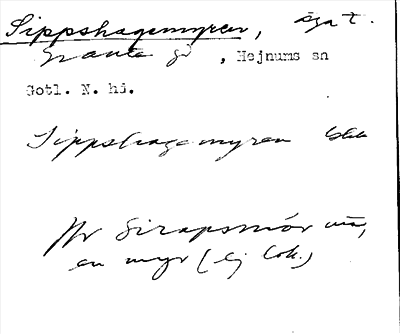 Sippshagemyren, ägat.
Graute gd, Hejnums sn
Gotl. N. hd.
Sippshagemyren
Nr Sirapsmór
en myr (ej lok.)